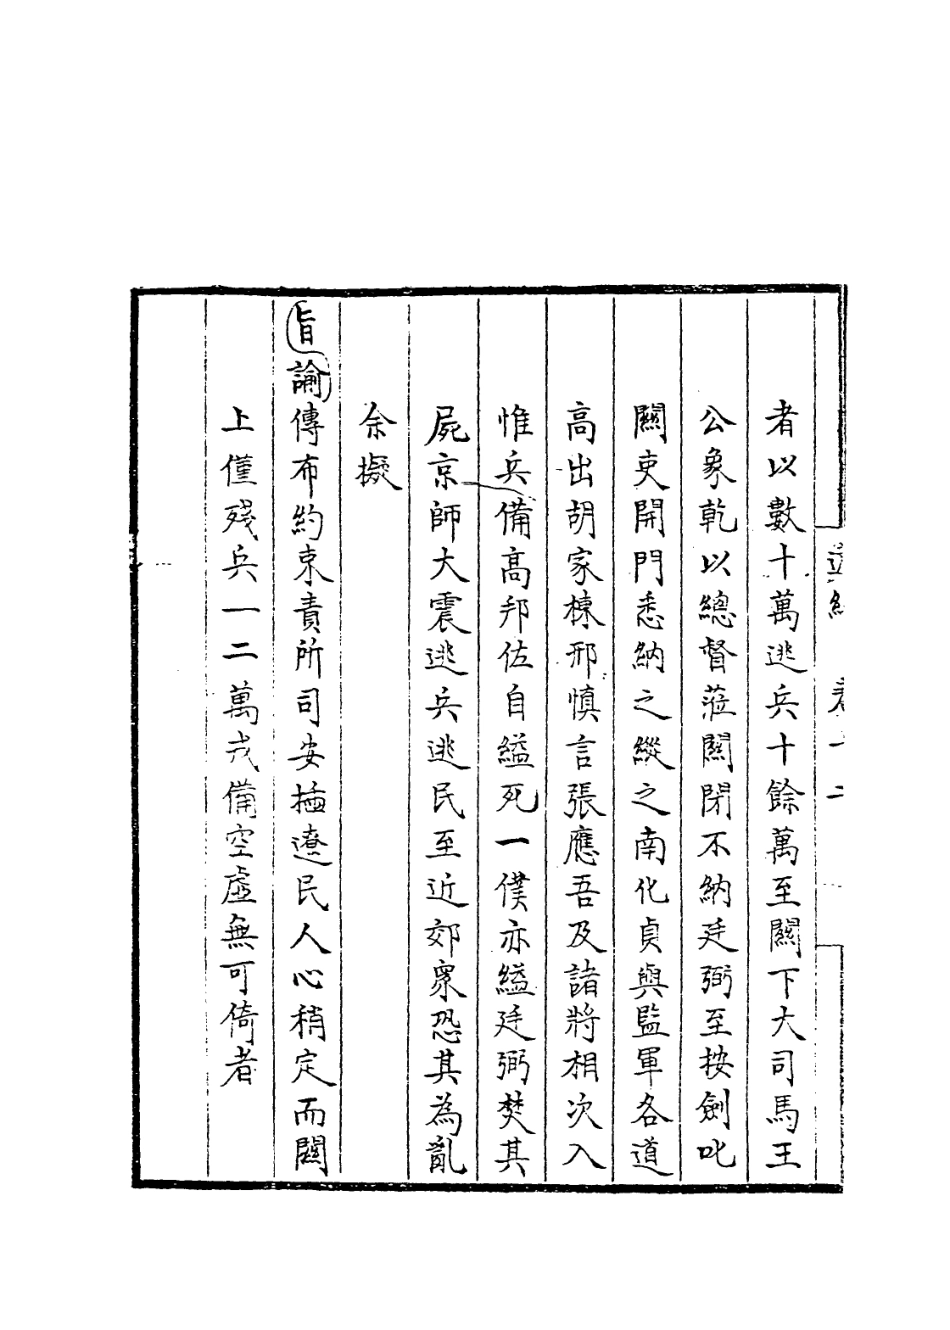 者以數十萬逃兵十餘萬至關下大司馬王
公象乾以總督蒞關閉不納廷弼至按劍叱
關吏開門悉納之縱之南化貞與監軍各道
高出胡家棟邢慎言張應吾及諸將相次入
惟兵備高邦佐自縊死一僕亦縊廷弼焚其
屍京師大震逃兵逃民至近郊眾恐其為亂
余擬
旨諭傳布約束責所司安插遼民人心稍定而關
上僅殘兵一二萬戎備空虛無可倚者